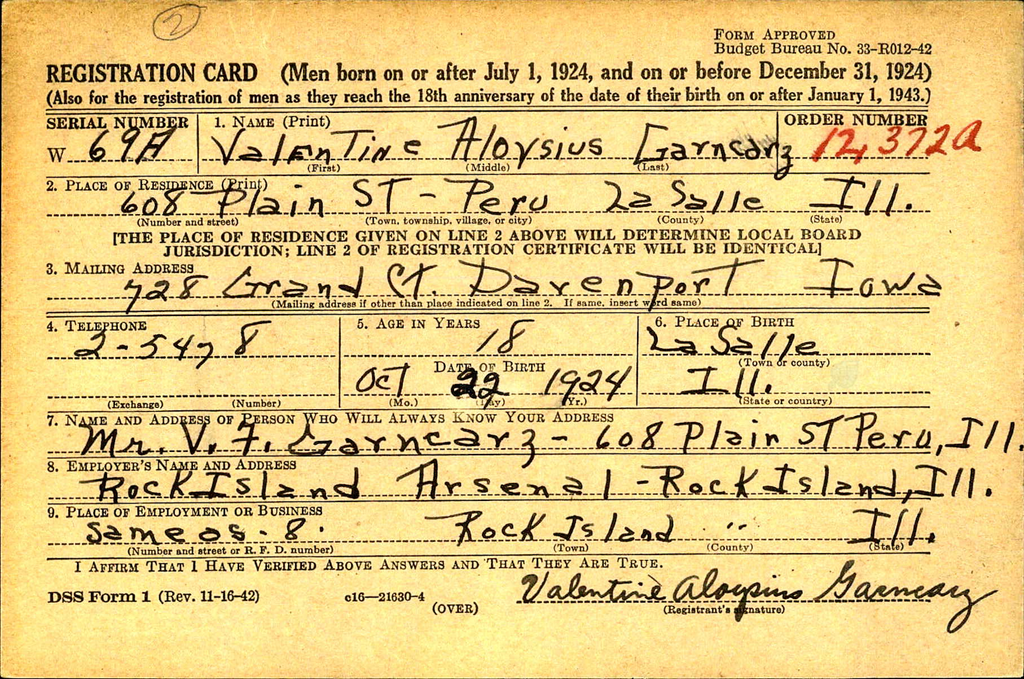 2
FORM APPROVED
Budget Bureau No. 33-R012-42
REGISTRATION CARD (Men born on or after July 1, 1924, and on or before December 31, 1924)
(Also for the registration of men as they reach the 18th anniversary of the date of their birth on or after January 1, 1943.)
SERIAL NUMBER 1. NAME (Print) ORDER NUMBER
W 69A Valentine Aloysius Garncarz 12,372A
(First) (Middle) (Last)
2. PLACE OF RESIDENCE (Print)
608 Plain ST - Peru LaSalle Ill.
(Number and street) (Town, township, village, or city) (County) (State)
[THE PLACE OF RESIDENCE GIVEN ON LINE 2 ABOVE WILL DETERMINE LOCAL BOARD
JURISDICTION; LINE 2 OF REGISTRATION CERTIFICATE WILL BE IDENTICAL]
3. MAILING ADDRESS
728 Grand Ct. Davenport Iowa
(Mailing address if other than place indicated on line 2. If same, insert word same)
4. TELEPHONE 5. AGE IN YEARS 6. PLACE OF BIRTH
2-5478 18 LaSalle
(Town or county)
DATE OF BIRTH
Oct 22 1924 Ill.
(Exchange) (Number) (Mo.) (Day) (Yr.) (State or country)
7. NAME AND ADDRESS OF PERSON WHO WILL ALWAYS KNOW YOUR ADDRESS
Mr. V. F. Garncarz - 608 Plain ST Peru, Ill.
8. EMPLOYER'S NAME AND ADDRESS
Rock Island Arsenal - Rock Island, Ill.
9. PLACE OF EMPLOYMENT OR BUSINESS
Same as - 8. Rock Island " Ill.
(Number and street or R. F. D. number) (Town) (County) (State)
I AFFIRM THAT I HAVE VERIFIED ABOVE ANSWERS AND THAT THEY ARE TRUE.
DSS Form 1 (Rev. 11-16-42) c16—21630-4 (OVER) Valentine Aloysius Garncarz
(Registrant's signature)